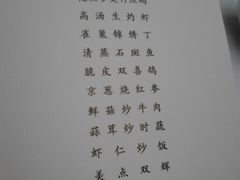 高汤生灼虾
雀巢锦绣丁
清蒸石斑鱼
脆皮双喜鸽
京葱烧红参
鲜菇炒牛肉
蒜茸炒时蔬
虾仁炒饭
美点双辉